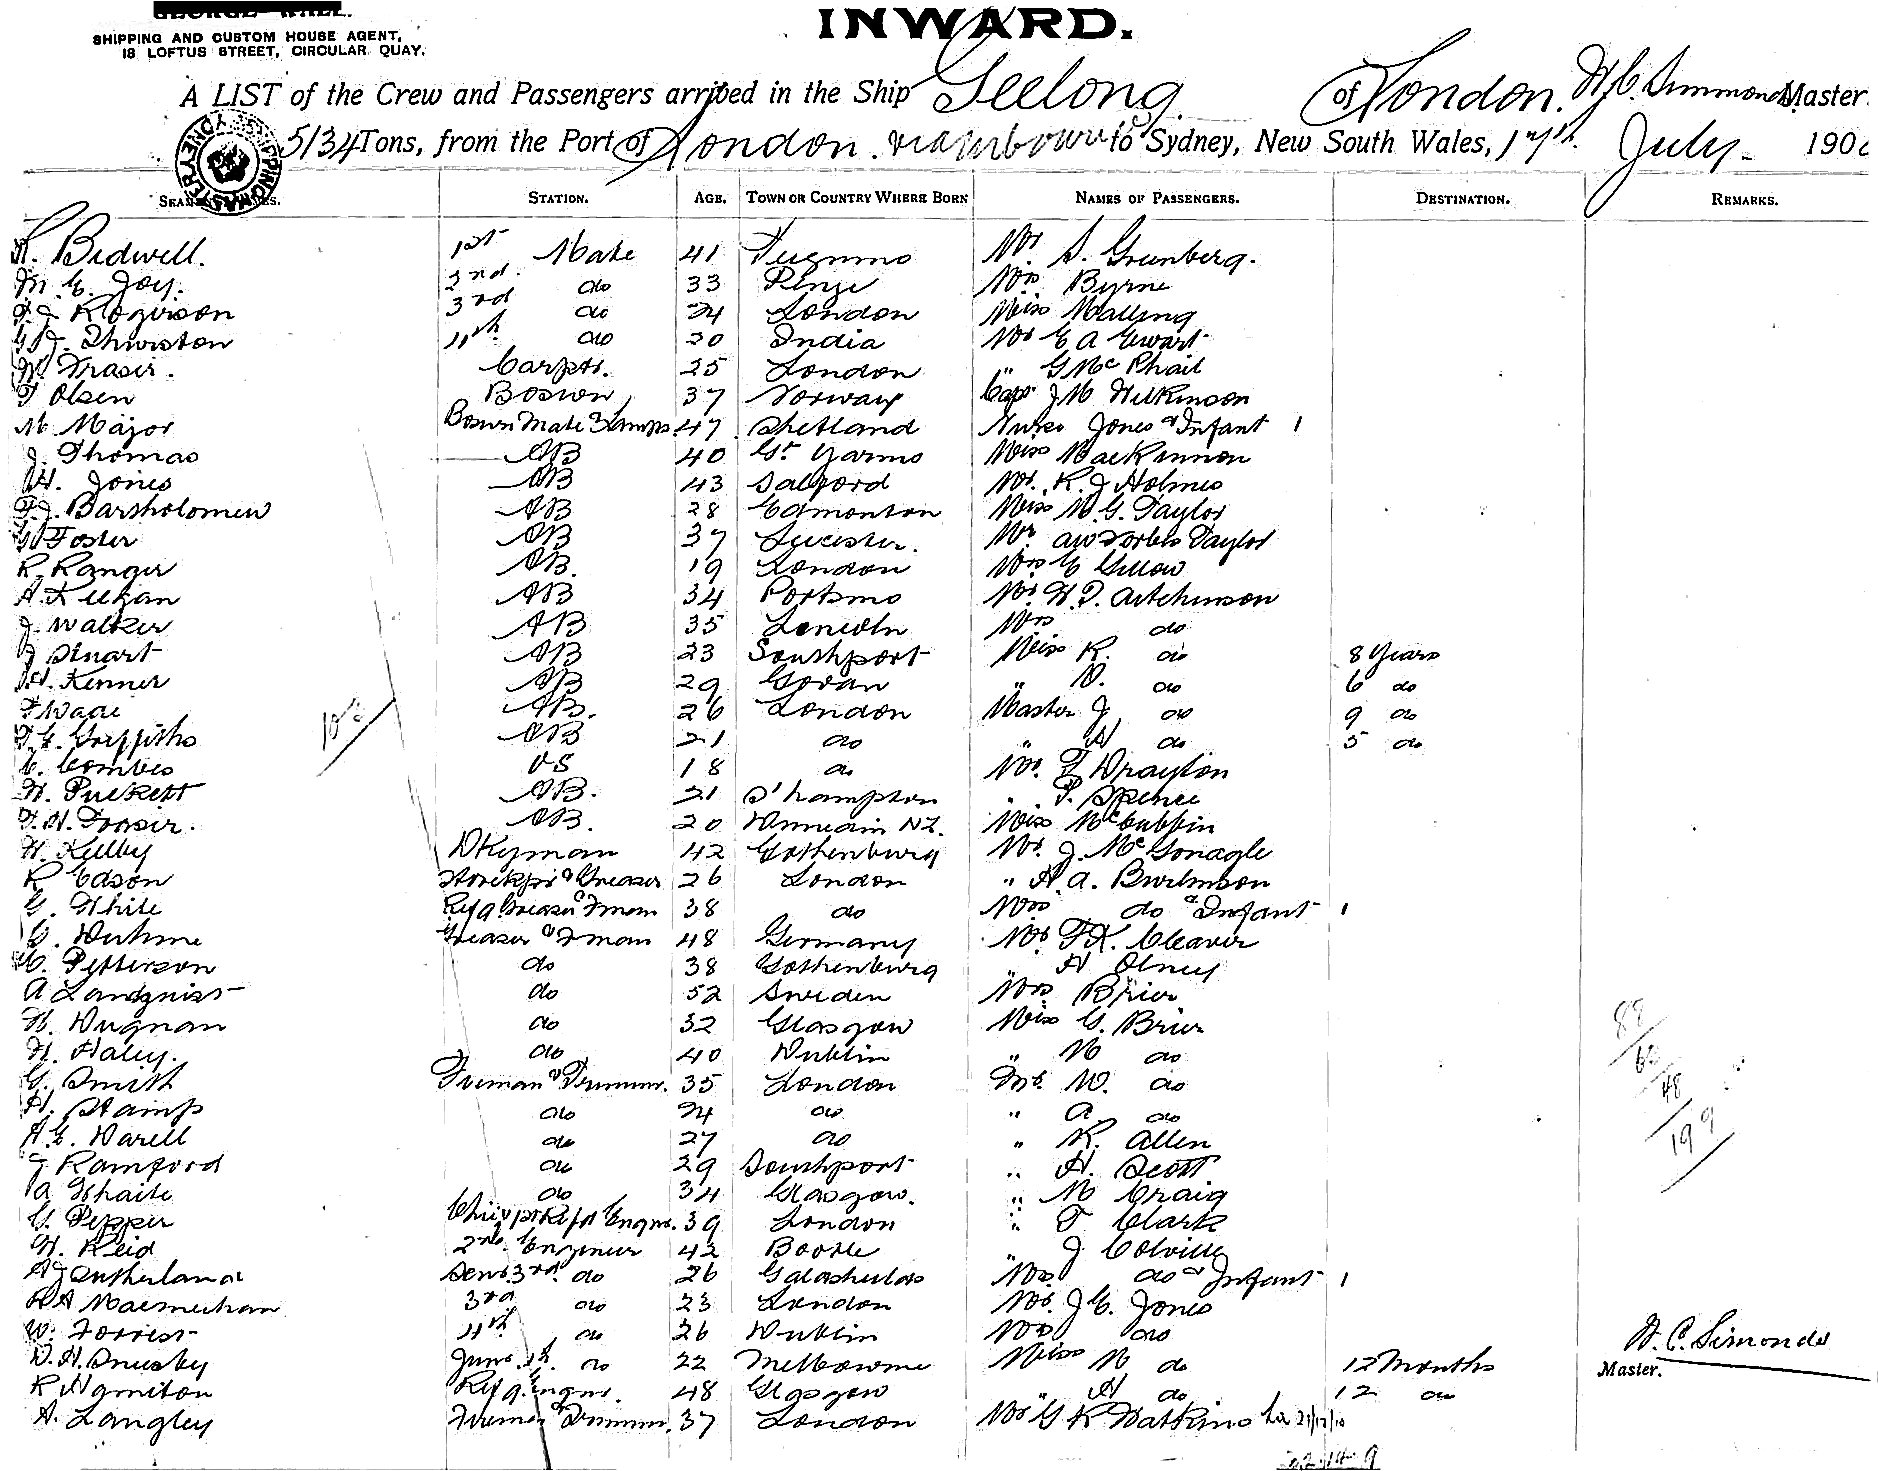 GEORGE WALL.
SHIPPING AND CUSTOM HOUSE AGENT,
18 LOFTUS STREET, CIRCULAR QUAY.
INWARD.
A LIST of the Crew and Passengers arrived in the Ship Geelong of London. Master.
5134 Tons, from the Port of London to Sydney, New South Wales, 17th. July 190
STATION. AGE. TOWN OR COUNTRY WHERE BORN NAMES OF PASSENGERS. DESTINATION. REMARKS.
Bidwell. 1st Mate 41 Mr S. Grunberg.
Joy. 2nd. do 33 Penge Mrs Byrne
Rogerson 3rd do 24 London Miss Malling
Thurston 4th do 20 India Mr E A Ewart
Fraser. Carptr. 25 London " G Mc Phail
Olsen Bosun 37 Norway Capt J M Wilkinson
M. Major Bosuns Mate & Lamps. 47 Shetland Nurse Jones & Infant 1
J. Thomas AB 40 Gt Yarmo Miss MacKinnon
Jones AB 43 Salford Mr. R. J Holmes
Bartholomew AB 28 Edmonton Miss M. G. Taylor
Foster AB 37 Leicester. Mr Forbes Taylor
R. Ranger AB. 19 London Mrs E Gillow
A. Keegan AB 34 Portsmo Mr H. D. Aitchinson
J. Walker AB 35 Lincoln Mrs do
J Stuart AB 23 Southport Miss R. do 8 Years
Kenner AB 29 Govan " D. do 6 do
AB. 26 London Master J. do 9 do
Griffiths AB 21 do " A do 5 do
C. Combes OS 18 do Mr. F Drayton
H. Puckett AB. 21 S'hampton " P. Spence
Fraser. AB. 20 Dunedin NZ. Miss McCubbin
H. Kelley DKyman 42 Gothenburg Mr. J. McGonagle
R Edson Storekpr & Greaser 26 London " H. A. Burlinson
G. White Refg. Greaser & Fman 38 do Mrs do & Infant 1
Greaser & Fman 48 Germany Mr F K. Cleaver
C. Petterson do 38 Gothenburg " H Olney
A Landquist do 52 Sweden Mrs Brier
H. Dugnan do 32 Glasgow Miss G. Brier
H. Haley. do 40 Dublin " M do
G. Smith Fireman & Trimmr. 35 London Mr. W. do
H. Stamp do 24 do " A do
A. E. Darell do 27 do " R. Allen
Ramford do 29 Southport " H. Scott
A Thaite do 34 Glasgow. " M Craig
G. Pepper Chief Refg Engnr. 39 London " T Clark
H. Reid 2nd. Engineer 42 Bootle " J Colville
A J Sutherland Senr. 3rd. do 26 Galashiels Mrs do & Infant 1
3rd do 23 London Mr. J. C. Jones
W. Forrest 4th do 26 Dublin Mrs do
Junr. 4th. do 22 Melbourne Miss M do 12 Months
R Hamilton Refg. Engnr. 48 Glasgow " A do 12 do
A. Langley Fireman & Trimmr. 37 London Mr G R Watkins
103
88
199
H. C. Simonds
Master.